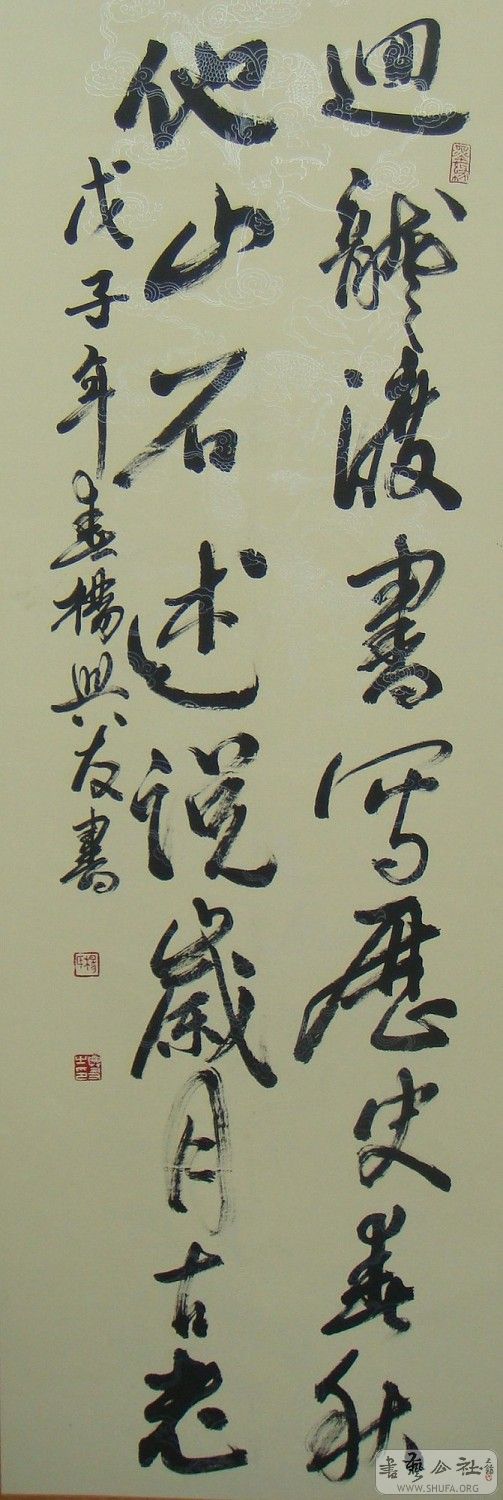 迴龍渡書寫歷史春秋
他山石述說歲月古老
戊子年春楊興友書
書藝公社
WWW.SHUFA.ORG